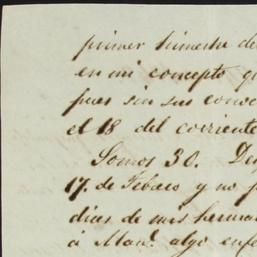 primer trimestre de
en mi concepto q
pues sin sus conoc
el 18 del corriente
Somos 30. Des
17. de Febrero y no p
dias de mis herma
á Man.l algo enfe